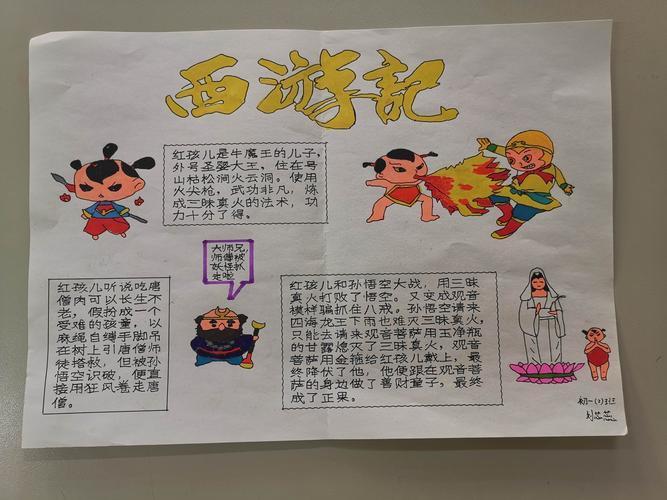 西游手記
红孩儿是牛魔王的儿子,
外号圣婴大王，住在号
山枯松涧火云洞。使用
火尖枪，武功非凡，炼
成三昧真火的法术，功
力十分了得。
大师兄,
师傅被
妖怪抓
走啦
红孩儿听说吃唐
僧肉可以长生不
老，假扮成一个
受难的孩童，以
麻绳自缚手脚吊
在树上引唐僧师
徒搭救，但被孙
悟空识破，便直
接用狂风卷走唐
僧。
红孩儿和孙悟空大战，用三昧
真火打败了悟空。又变成观音
模样骗抓住八戒。孙悟空请来
四海龙王下雨也难灭三昧真火，
只能去请来观音菩萨用玉净瓶
的甘露熄灭了三昧真火，观音
菩萨用金箍给红孩儿戴上，最
终降伏了他，他便跟在观音菩
萨的身边做了善财童子，最终
成了正果。
初一(2)班
刘芯蕊